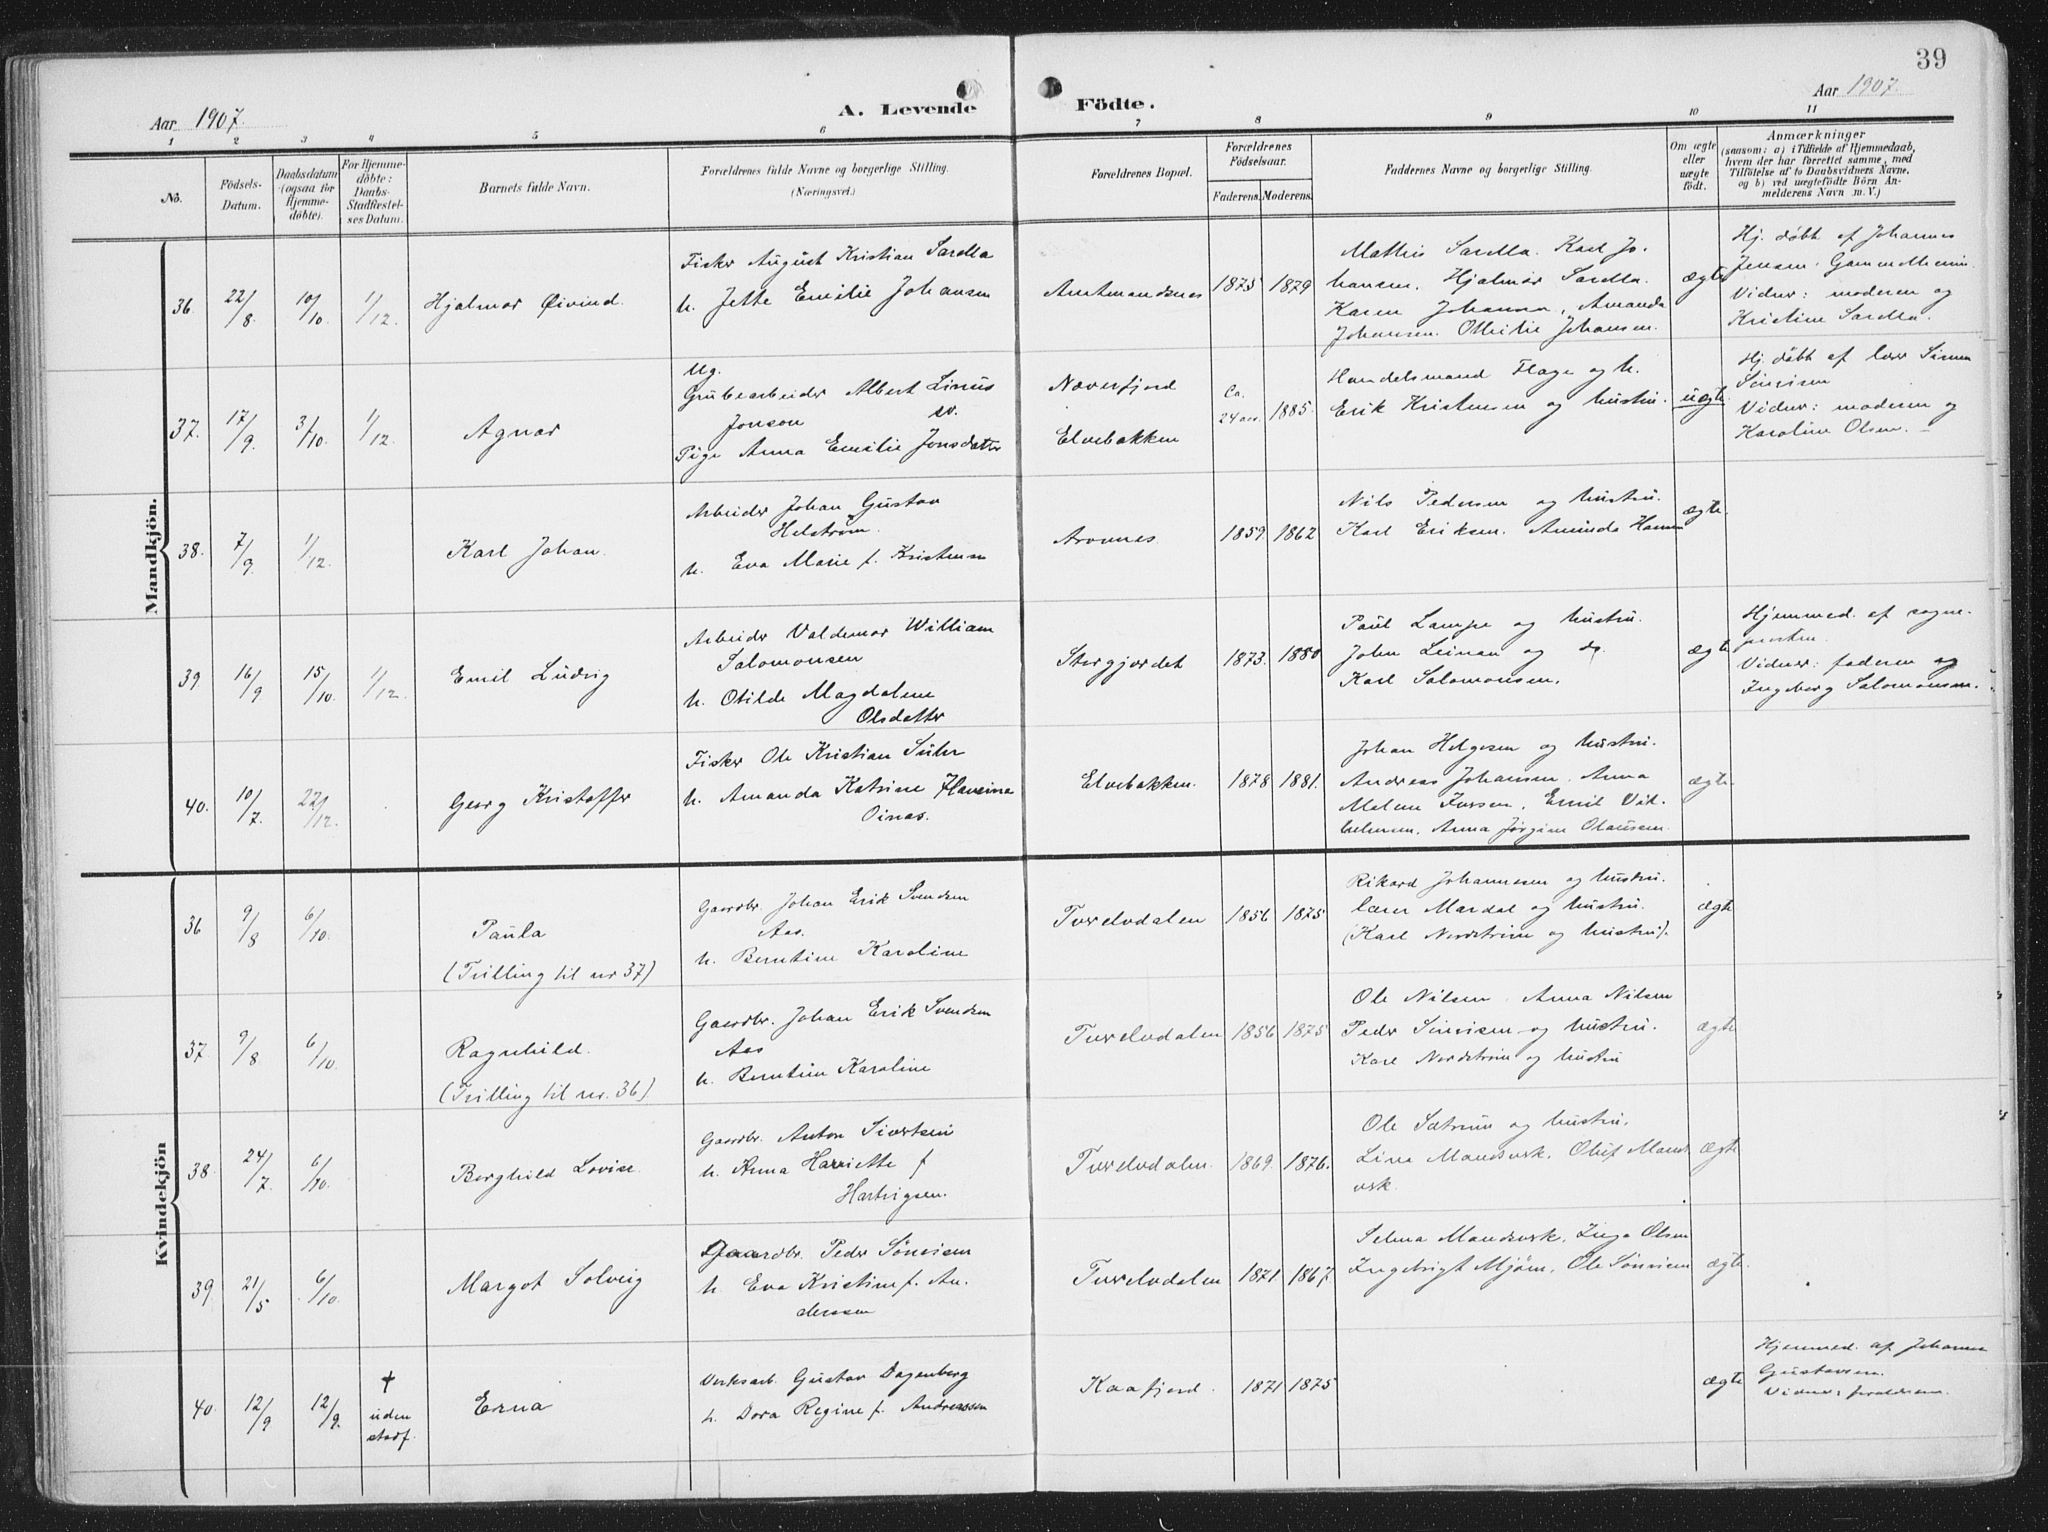 39
Aar 1907.
A. Levende
Födte.
Aar 1907.
1 2 3 4 5 6 7 8 9 10 11
No.
Födsels-
Datum.
Daabsdatum
(ogsaa for
Hjemme-
döbte).
For Hjemme-
döbte:
Daabs-
Stadfæstel-
ses Datum.
Barnets fulde Navn.
Forældrenes fulde Navne og borgerlige Stilling.
(Næringsvei.)
Forældrenes Bopæl.
Forældrenes
Födselsaar.
Faderens. Moderens.
Faddernes Navne og borgerlige Stilling.
Om ægte
eller
uægte
födt.
Anmærkninger
(saasom: a) i Tilfælde af Hjemmedaab,
hvem der har forrettet samme, med
Tilföielse af to Daabsvidners Navne,
og b) ved uægtefödte Börn An-
melderens Navn m. V.)
Mandkjön.
36. 22/8 10/10 1/12. Hjalmar Øivind.
Fisker August Kristian Sardla
h. Jette Emilie Johansen
Amtmandsnes 1875 1879
Mathis Sardla. Karl Jo-
hansen, Hjalmar Sardla.
Karen Johanna, Amanda
Johansen. Othilie Johansen.
ægte
Hj. döbt af Johannes
Jensen.
Vidner: moderen og
Kristine Sardla.
37. 17/9. 3/10. 1/12. Agnar
Ug.
Grubearbeider Albert Linus
Jonson sv.
Pige Anna Emilie Jonsdatter
Næverfjord
Elvebakken
Ca.
24 aar. 1885.
Handelsmand Flage og h.
Erik Kristensen og hustru.
uægte
Hj. döbt af lærer Simon
Vidner: moderen og
Karoline Olsen.
38. 7/9 1/12. Karl Johan.
Arbeider Johan Gustav
Helström.
h. Eva Marie f. Kristensen
Aronnes. 1859. 1862
Nils Pedersen og hustru.
Karl Eriksen. Aminda Hansen
ægte
39. 16/9 15/10. 1/12. Emil Ludvig
Arbeider Valdemar William
Salomonsen
h. Otilde Magdalene
Olsdatter
Storgjordet 1873. 1880
Paul Lampe og hustru.
John Leinan og do.
Karl Salomonsen.
ægte
Hjemmed. af sogne-
presten.
Vidner: faderen og
Ingeborg Salomonsen.
40. 10/7. 22/12. Georg Kristoffer
Fisker Ole Kristian Suhr
h. Amanda Katrine Hansine
Oinas.
Elvebakken. 1878 1881.
Johan Helgesen og hustru.
Andreas Johansen. Anna
Malene Iversen, Emil Vil-
helmsen, Anna Jørgine Olausen.
ægte
Kvindekjön
36 9/8 6/10. Paula
(Trilling til nr 37)
Gaardbr. Johan Erik Svendsen
Aas.
h. Berntine Karoline
Tverelvdalen 1856 1875
Rikard Johannesen og hustru.
lærer Mardal og hustru.
(Karl Nordström og hustru).
ægte
37. 9/8 6/10. Ragnhild.
(Trilling til nr. 36).
Gaardbr. Johan Erik Svendsen
Aas
h. Berntine Karoline
Tverelvdalen 1856 1875
Ole Nilsen. Anna Nilsen
Peder Simonsen og hustru.
Karl Nordström og hustru
ægte
38. 24/7. 6/10. Borghild Lovise.
Gaardbr. Anton Sivertsen
h. Anna Harriette f
Hartvigsen.
Tverelvdalen. 1869. 1876.
Ole Sætrum og hustru.
Lina Mandsverk. Oluf Mands-
verk.
ægte
39. 21/5 6/10. Margot Solveig
Gaardbr. Peder Simonsen
h. Eva Kristine f. An-
derssen
Tverelvdalen 1871. 1867.
Selma Mandsverk, Inga Olsen
Ingebrigt Mjöen, Ole Simonsen
ægte.
40. 12/9 12/9. †
uden
stadf.
Erna
Verksarb. Gustav Dagenborg
h. Dora Regine f. Andreassen
Kaafjord. 1871 1875
ægte
Hjemmed. af Johannes
Gustavsen.
Vidner: forældrene.